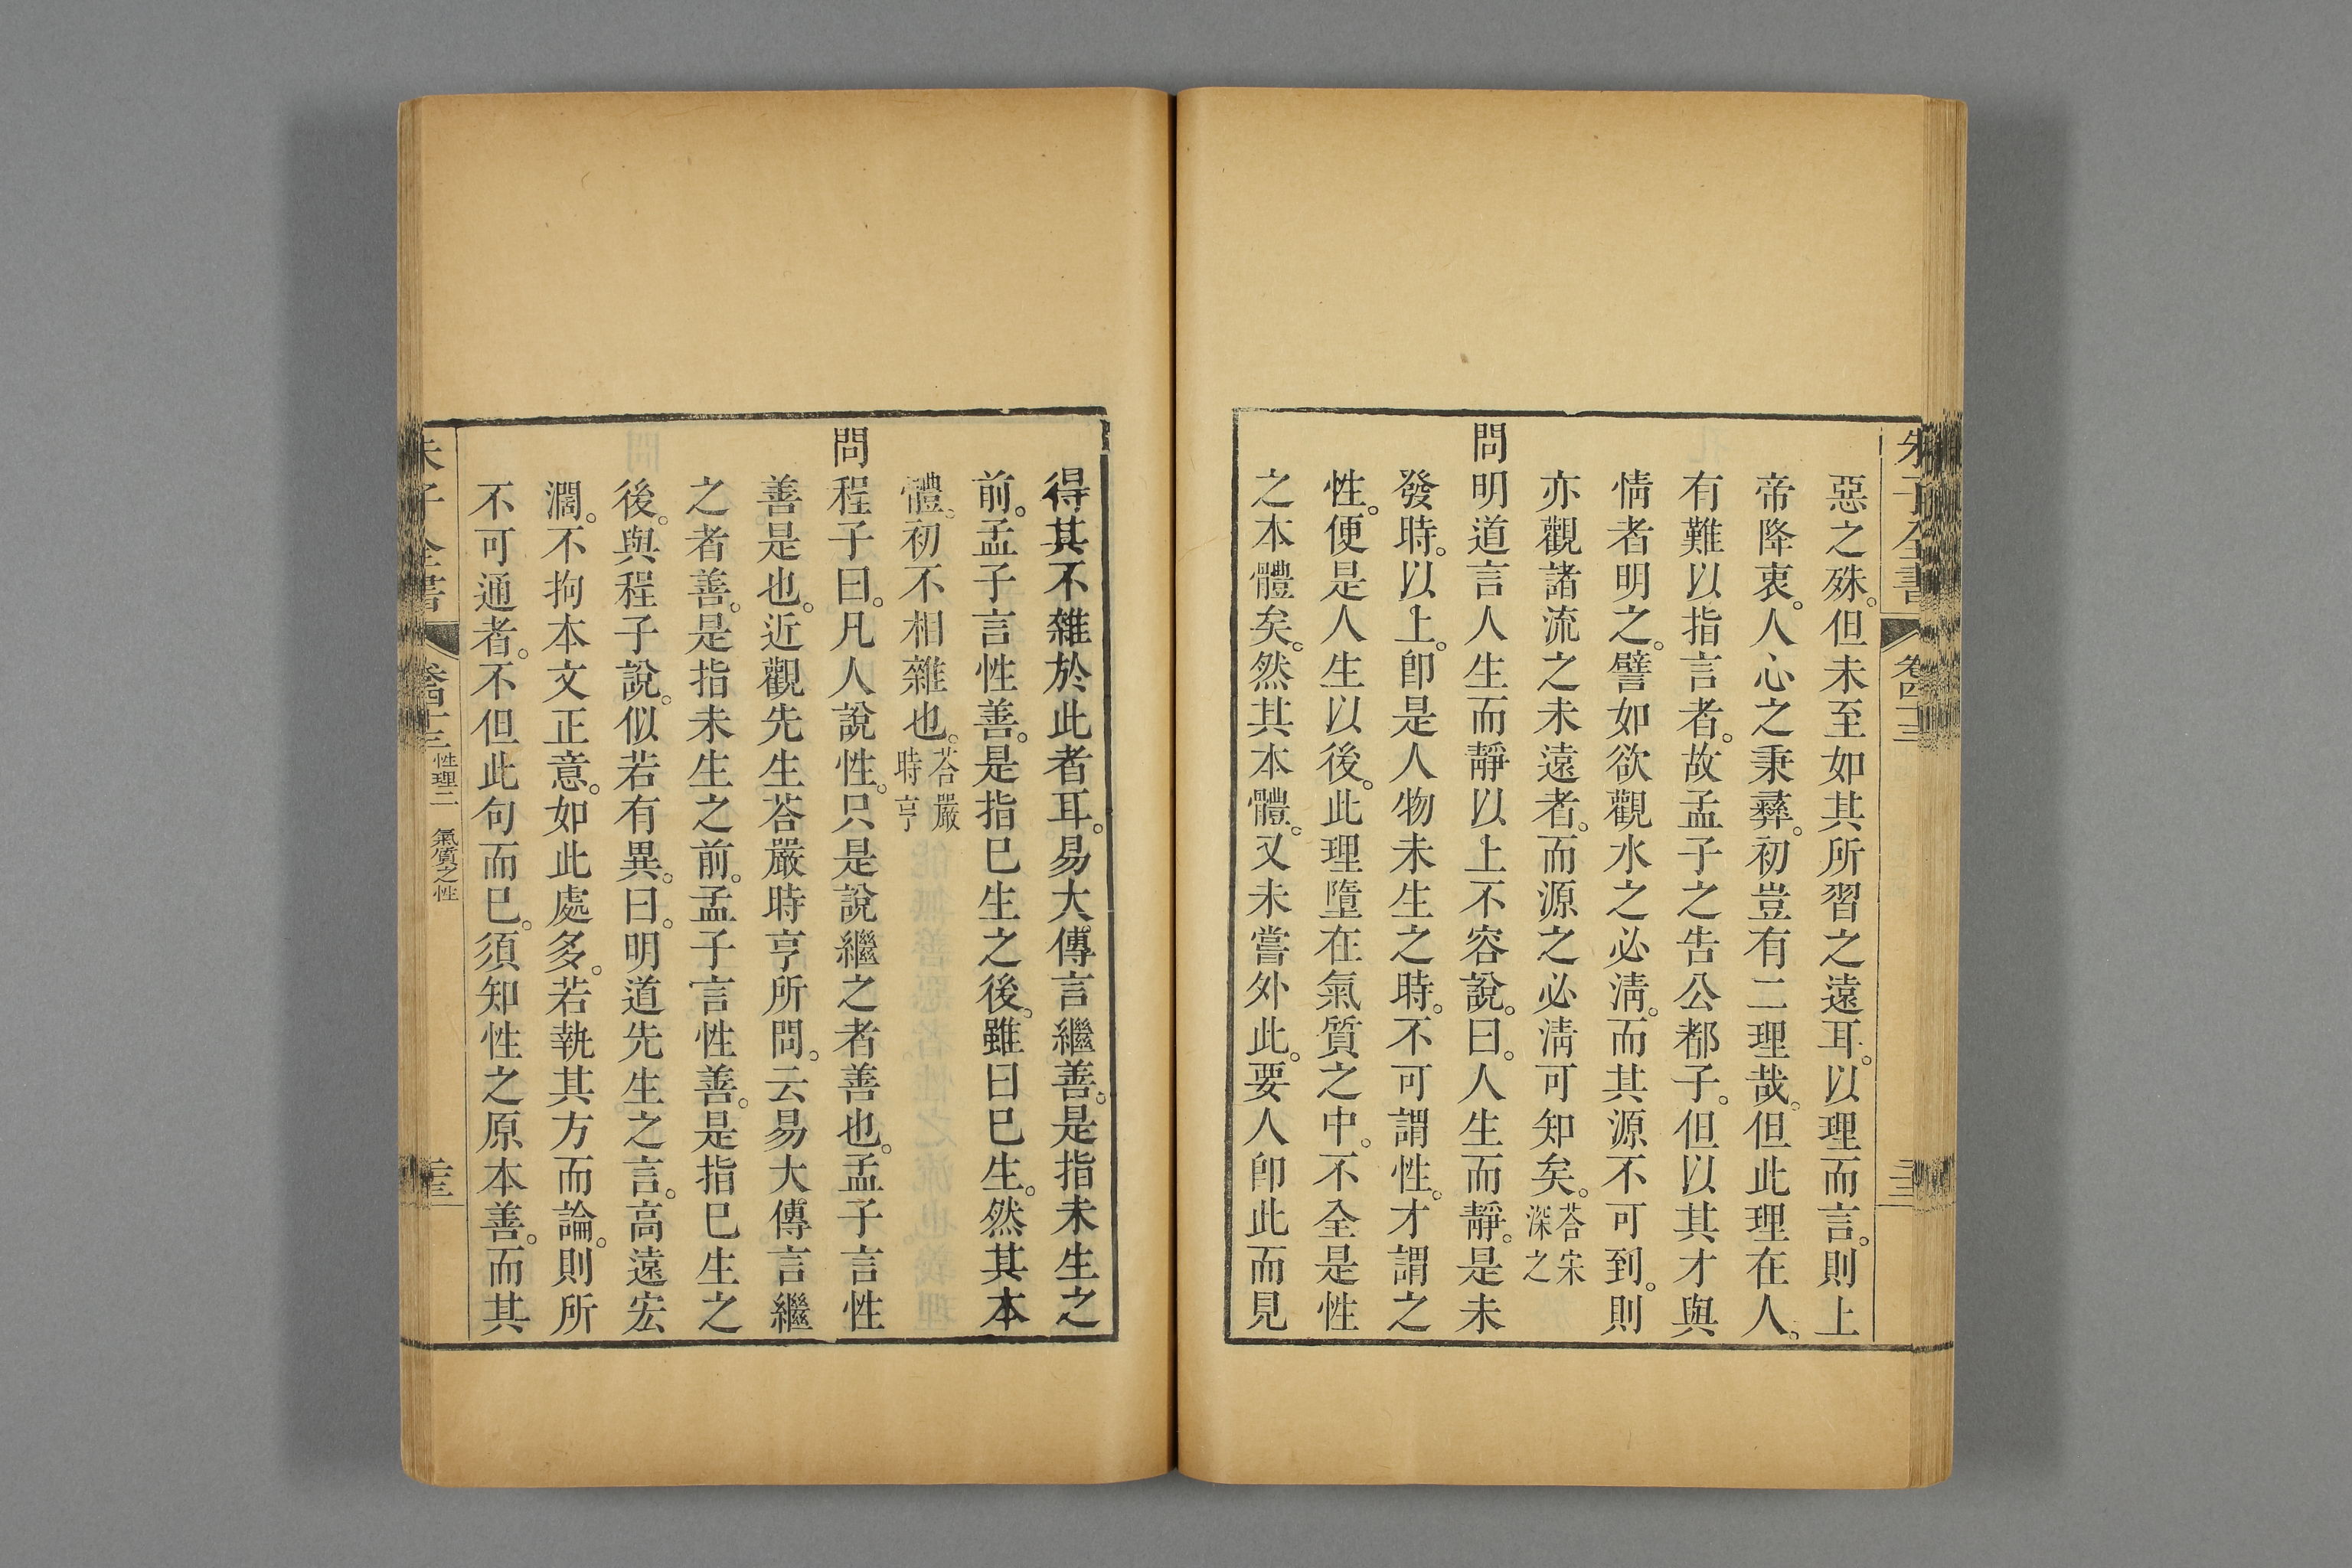 朱子全書 卷四十三
惡之殊。但未至如其所習之遠耳。以理而言。則上
帝降衷。人心之秉彝。初豈有二理哉。但此理在人。
有難以指言者。故孟子之告公都子。但以其才與
情者明之。譬如欲觀水之必淸。而其源不可到。則
亦觀諸流之未遠者。而源之必淸可知矣。荅宋深之
問明道言人生而靜以上不容說。曰。人生而靜。是未
發時。以上。卽是人物未生之時。不可謂性。才謂之
性。便是人生以後。此理墮在氣質之中。不全是性
之本體矣。然其本體。又未嘗外此。要人卽此而見
得其不雜於此者耳。易大傳言繼善。是指未生之
前。孟子言性善。是指已生之後。雖曰已生。然其本
體。初不相雜也。荅嚴時亨
問程子曰。凡人說性。只是說繼之者善也。孟子言性
善是也。近觀先生荅嚴時亨所問。云易大傳言繼
之者善。是指未生之前。孟子言性善。是指已生之
後。與程子說。似若有異。曰。明道先生之言。高遠宏
濶。不拘本文正意。如此處多。若執其方而論。則所
不可通者。不但此句而已。須知性之原本善。而其
朱子全書 卷四十三 性理二 氣質之性